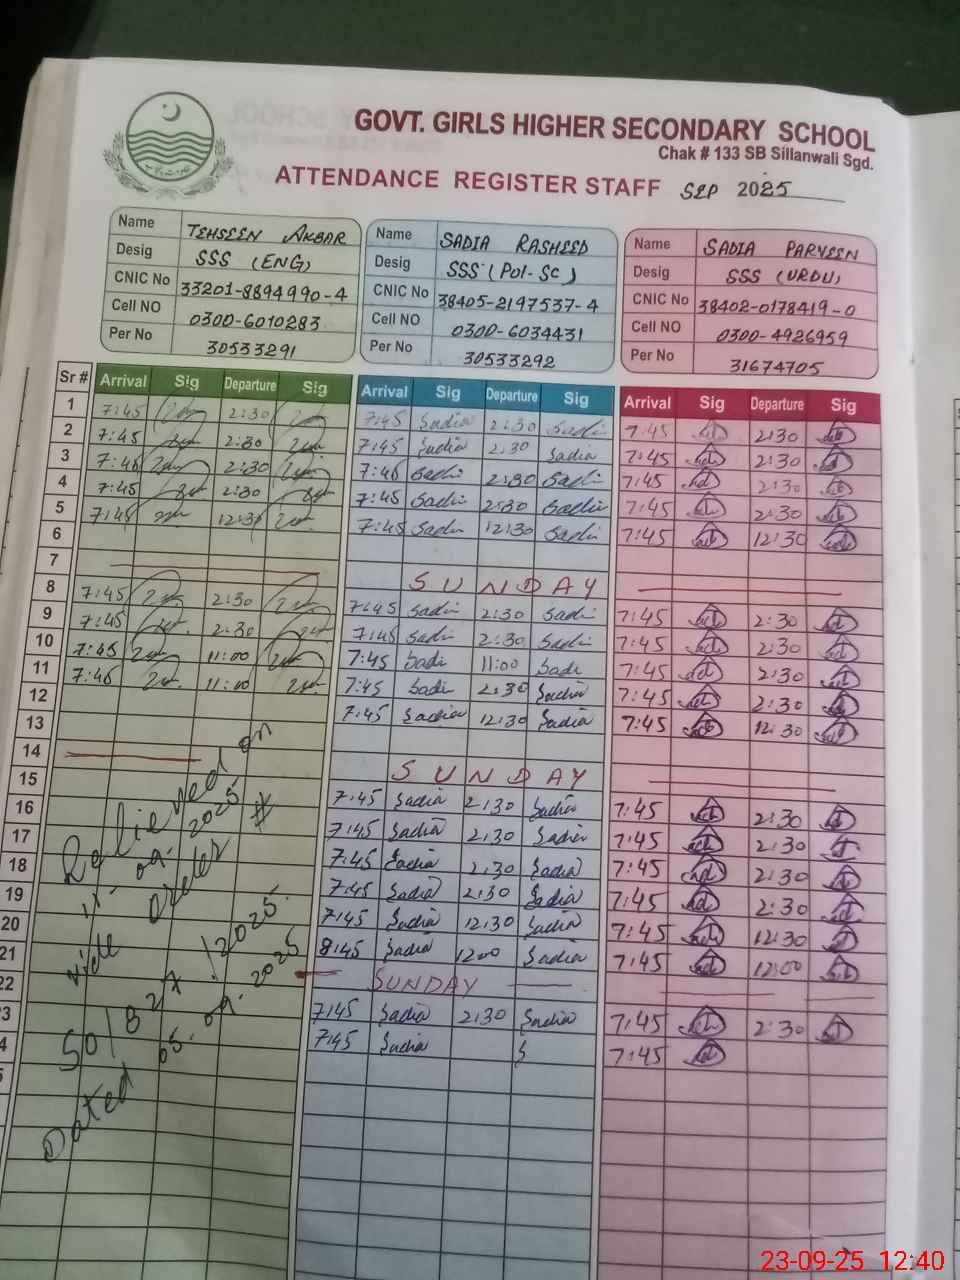 GOVT. GIRLS HIGHER SECONDARY SCHOOL
Chak # 133 SB Sillanwali Sgd.
ATTENDANCE REGISTER STAFF SEP 2025
Name TEHSEEN AKBAR Name SADIA RASHEED Name SADIA PARVEEN
Desig SSS (ENG) Desig SSS (Pol-Sc) Desig SSS (URDU)
CNIC No 33201-8894990-4 CNIC No 38405-2197537-4 CNIC No 38402-0178419-0
Cell NO 0300-6010283 Cell NO 0300-6034431 Cell NO 0300-4926959
Per No 30533291 Per No 30533292 Per No 31674705
Sr # Arrival Sig Departure Sig Arrival Sig Departure Sig Arrival Sig Departure Sig
1 7:45 2:30 7:45 Sadia 2:30 Sadia 7:45 2:30
2 7:45 2:30 7:45 Sadia 2:30 Sadia 7:45 2:30
3 7:46 2:30 7:46 Sadia 2:30 Sadia 7:45 2:30
4 7:45 2:30 7:45 Sadia 2:30 Sadia 7:45 2:30
5 7:45 12:30 7:45 Sadia 12:30 Sadia 7:45 12:30
6
7 SUNDAY
8 7:45 2:30 7:45 Sadia 2:30 Sadia 7:45 2:30
9 7:45 2:30 7:45 Sadia 2:30 Sadia 7:45 2:30
10 7:45 11:00 7:45 Sadi 11:00 Sadi 7:45 2:30
11 7:46 11:00 7:45 Sadi 2:30 Sadia 7:45 2:30
12 7:45 Sadia 12:30 Sadia 7:45 12:30
13
14 SUNDAY
15 7:45 Sadia 2:30 Sadia 7:45 2:30
16 7:45 Sadia 2:30 Sadia 7:45 2:30
17 7:45 Sadia 2:30 Sadia 7:45 2:30
18 7:45 Sadia 2:30 Sadia 7:45 2:30
19 7:45 Sadia 12:30 Sadia 7:45 12:30
20 8:45 Sadia 12:00 Sadia 7:45 12:00
21 SUNDAY
22 7:45 Sadia 2:30 Sadia 7:45 2:30
3 7:45 Sadia S 7:45
4
5
Relieved on
11-09-2025
vide order #
501827/2025.
Dated 05.09.2025
23-09-25 12:40